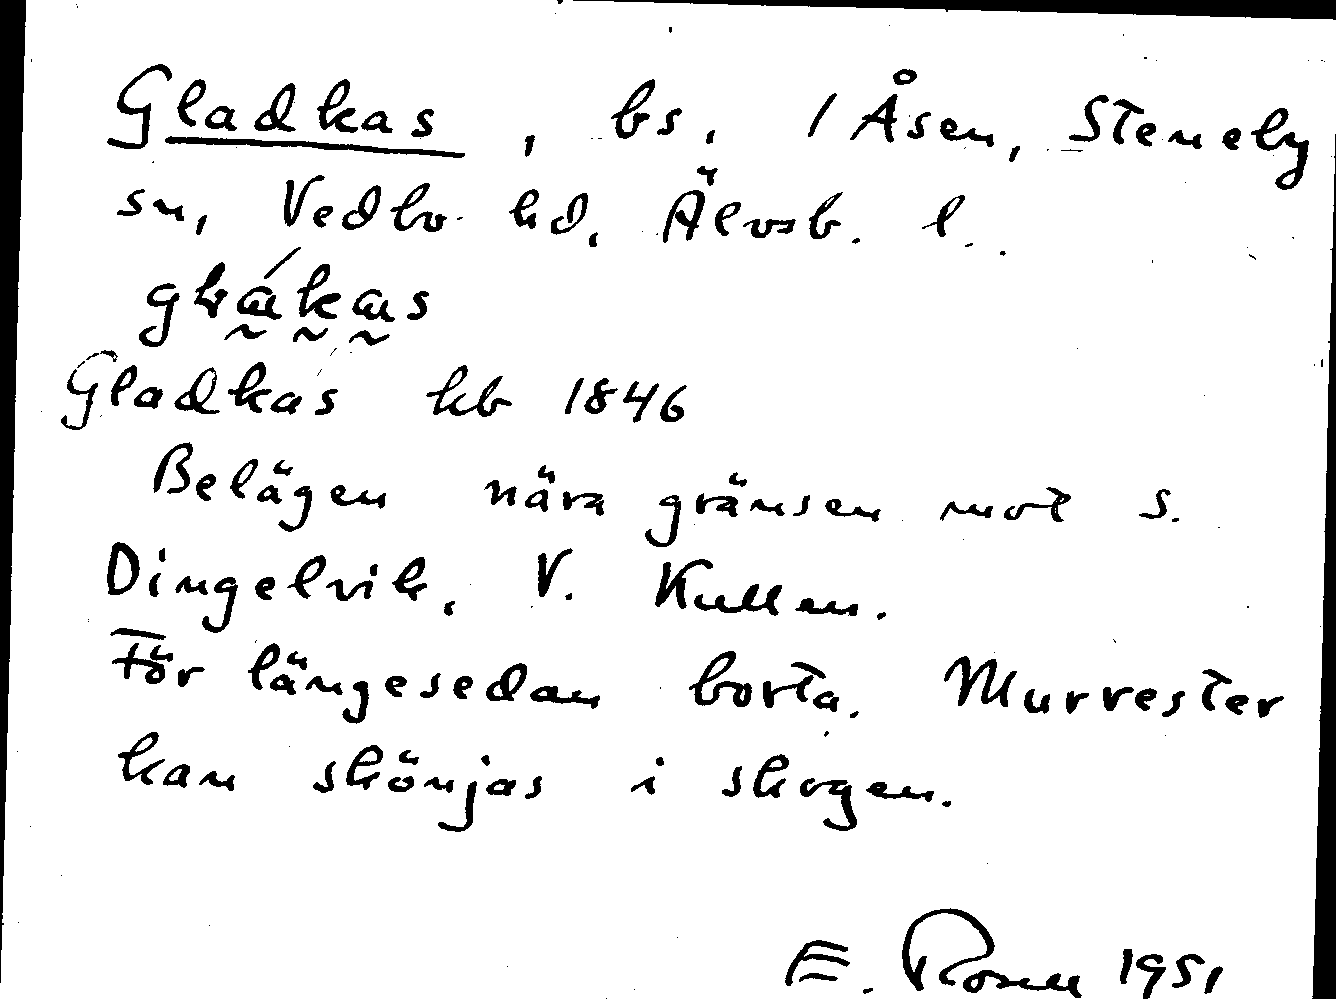 Gladkas, bs, / Åsen, Steneby
sn, Vedbo hd, Älvsb. l.
Gladkas kb 1846
Belägen nära gränsen mot s.
Dingelvik, V. Kullen.
För längesedan borta. Murrester
kan skönjas i skogen.
E. Rosell 1951